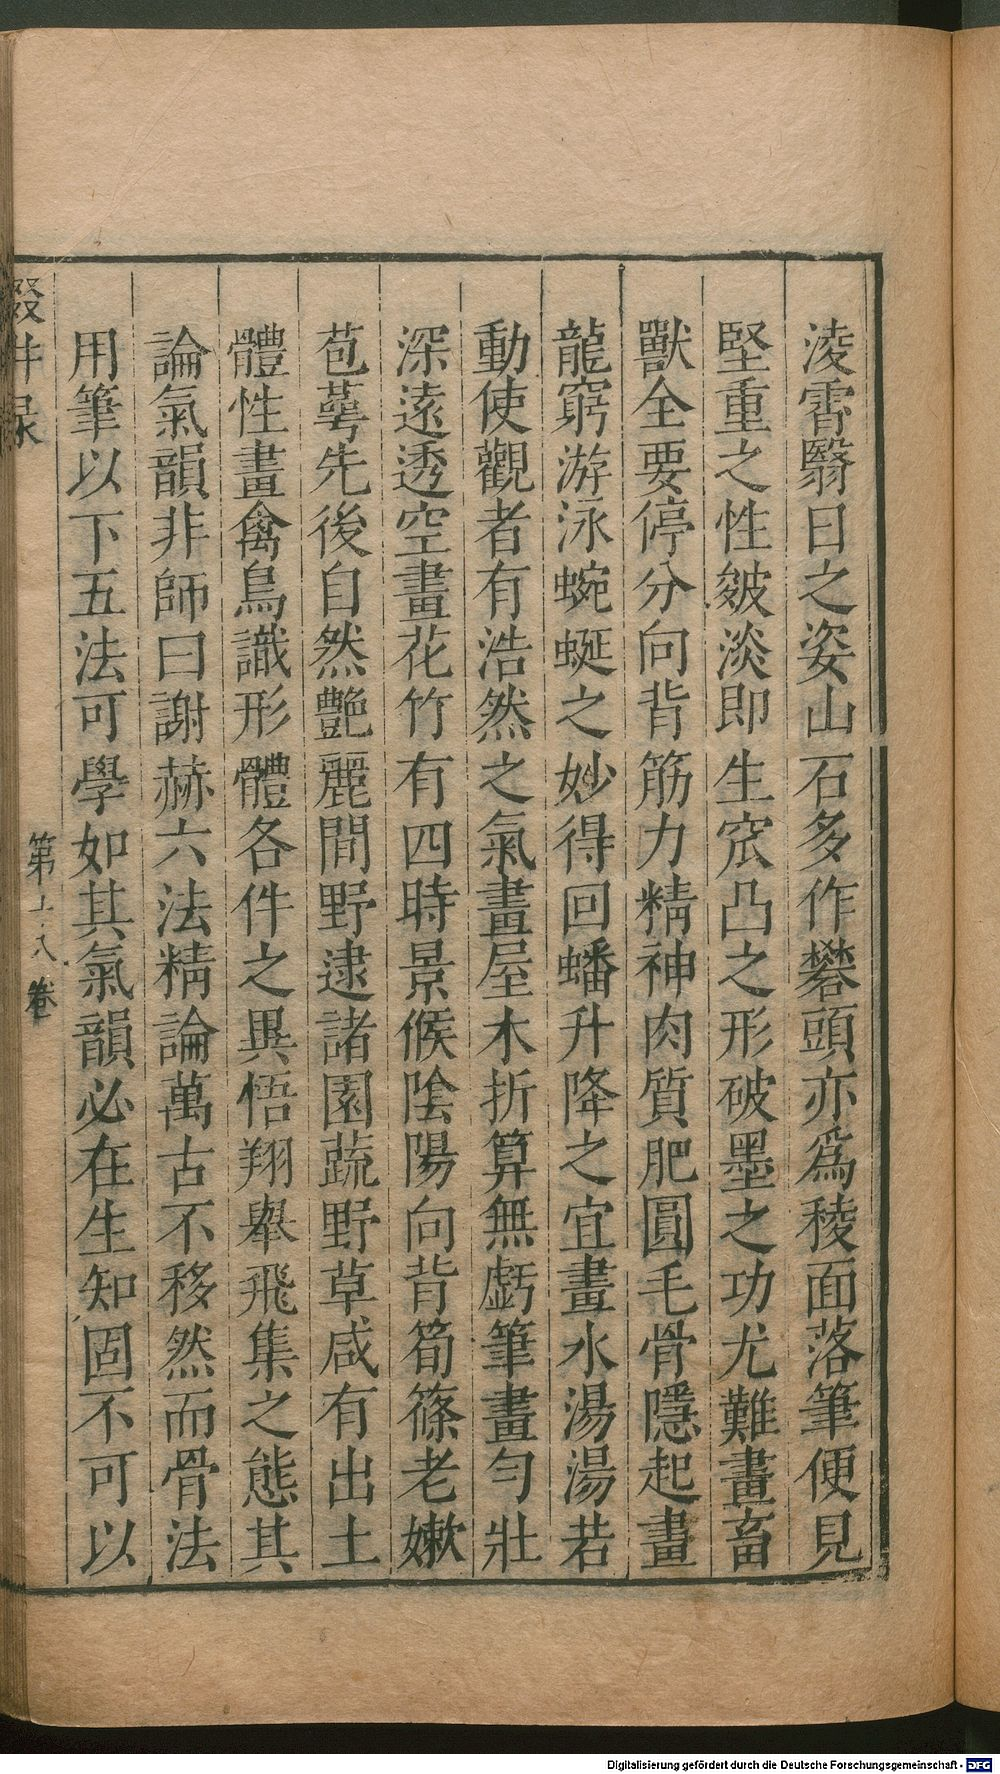 淩霄翳日之姿山石多作礬頭亦爲稜面落筆便見
堅重之性皴淡即生窊凸之形破墨之功尤難畫畜
獸全要停分向背筋力精神肉質肥圓毛骨隱起畫
龍窮游泳蜿蜒之妙得回蟠升降之宜畫水湯湯若
動使觀者有浩然之氣畫屋木折算無虧筆畫勻壯
深遠透空畫花竹有四時景候陰陽向背筍篠老嫰
苞蕚先後自然艶麗間野逮諸園蔬野草咸有出土
體性畫禽鳥識形體各件之異悟翔舉飛集之態其
論氣韻非師曰謝赫六法精論萬古不移然而骨法
用筆以下五法可學如其氣韻必在生知固不可以
第十八卷
Digitalisierung gefördert durch die Deutsche Forschungsgemeinschaft - DFG